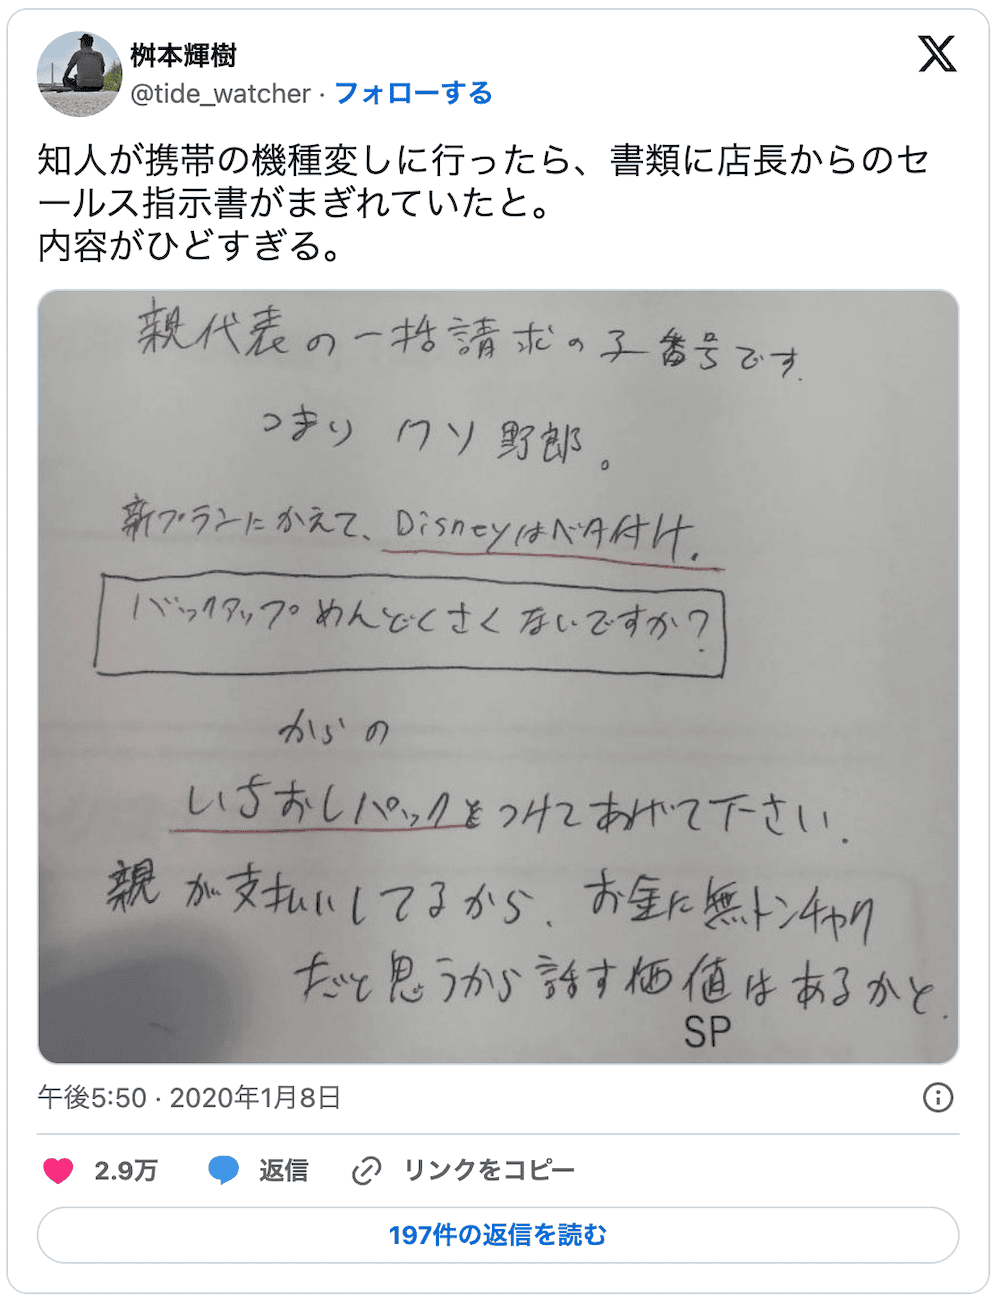 桝本輝樹
@tide_watcher · フォローする
知人が携帯の機種変しに行ったら、書類に店長からのセ
ールス指示書がまぎれていたと。
内容がひどすぎる。
親代表の一括請求の子番号です.
つまり クソ野郎。
新プランにかえて、Disneyはベタ付け.
バックアップめんどくさくないですか?
からの
いちおしパックをつけてあげて下さい.
親が支払いしてるから、お金に無トンチャク
だと思うから話す価値はあるかと.
SP
午後5:50 · 2020年1月8日
2.9万 返信 リンクをコピー
197件の返信を読む